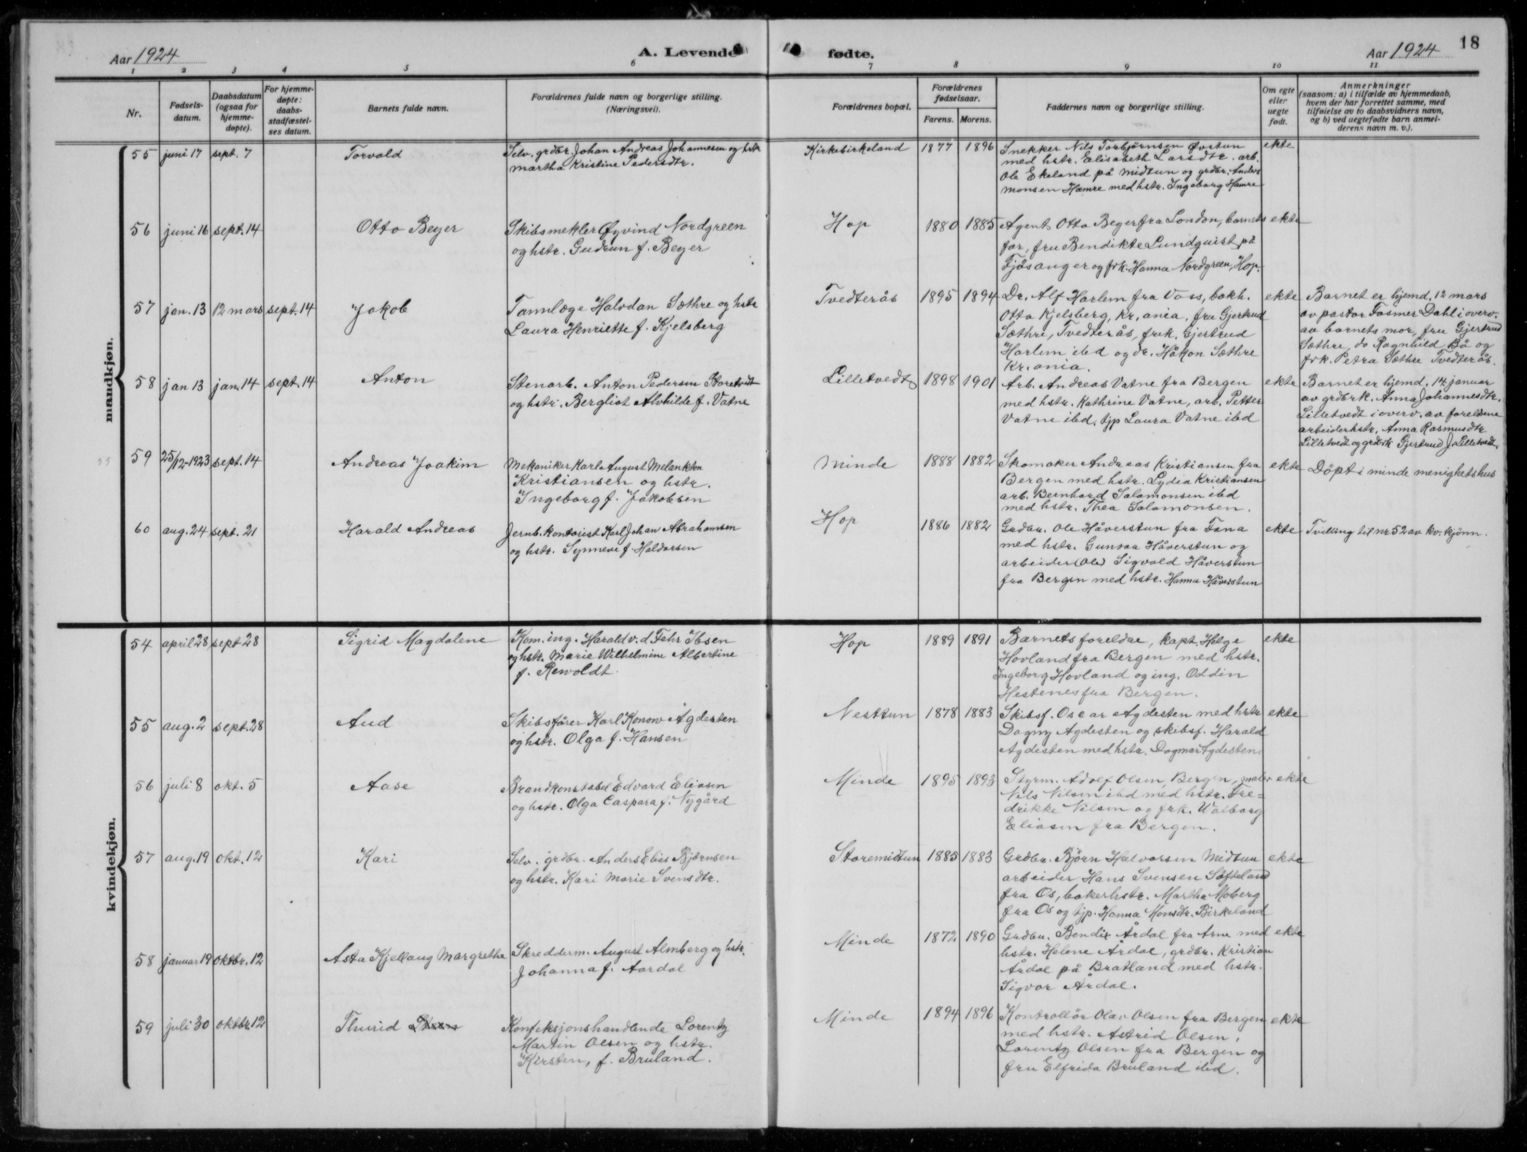 Aar 1924
A. Levende fødte.
Aar 1924
18
1 2 3 4 5 6 7 8 9 10 11
Nr.
Fødsels-
datum.
Daabsdatum
(ogsaa for
hjemme-
døpte).
For hjemme-
døpte:
daabs-
stadfæstel-
ses datum.
Barnets fulde navn.
Forældrenes fulde navn og borgerlige stilling.
(Næringsvei).
Forældrenes bopæl.
Forældrenes
fødselsaar.
Farens. Morens.
Faddernes navn og borgerlige stilling.
Om egte
eller
uegte
født.
Anmerkninger
(saasom: a) i tilfælde av hjemmedaab,
hvem der har forrettet samme, med
tilføielse av to daabsvidners navn,
og b) ved uegtefødte barn anmel-
derens navn m. v.).
mandkjøn.
55 juni 17 sept. 7 Torvald
Selv. grdbr. Johan Andreas Johannesen og hstr.
Martha Kristine Pedersdtr.
Kirkebirkeland 1877 1896
Snekker Nils Torbjørnsen Øvstun
med hstr. Elisabeth Larsdtr. arb.
Ole Ekeland på Midtun og grdbr. Anders
monsen Hamre med hstr. Ingeborg Hamre
ekte
56 juni 16 sept. 14 Otto Beyer
Skibsmekler Øyvind Nordgreen
og hstr. Gudrun f. Beyer
Hop 1880 1885
Agent Otto Beyer fra London, barnets
far, fru Bendikte Lundquist på
Fjøsanger og frk. Hanna Nordgreen, Hop.
ekte
57 jan. 13 12 mars sept. 14 Jakob
Tannlæge Halvdan Sæthre og hstr
Laura Henriette f. Kjelsberg
Tvedterås 1895 1894
Dr. Alf Harlem fra Voss, bokh.
Otto Kjelsberg, Kr.ania, fru Gjertrud
Sæthre, Tvedterås, frk. Gjertrud
Harlem ibd og dr. Håkon Sæthre
Kr.ania.
ekte
Barnet er hjemd. 12 mars
av pastor Fasmer Dahl i overv.
av barnets mor, fru Gjertrud
Sæthre, do Ragnhild Bå og
frk. Petra Sæthre Tvedterås.
58 jan 13 jan. 14 sept. 14 Anton
Stenarb. Anton Pedersen Storetvedt
og hstr. Bergliot Alvhilde f. Vatne
Lilletvedt 1898 1901
Arb. Andreas Vatne fra Bergen
med hstr. Kathrine Vatne, arb. Petter
Vatne ibd, tjp Laura Vatne ibd
ekte
Barnet er hjemd. 14 januar
av grdbrk. Anna Johannesdtr.
Lilletvedt i overv. av foreldrene
arbeiderhstr. Anna Rasmusdtr
Lilletvedt og grdbrk Gjertrud J. Lilletvedt.
59 25/12-1923 sept. 14 Andreas Joakim
Mekaniker Karl August Melankton
Kristiansen og hstr.
Ingeborg f. Jakobsen
Minde 1888 1882
Skomaker Andreas Kristiansen fra
Bergen med hstr. Lydia Kristiansen
arb. Bernhard Salamonsen ibd
med hstr. Thea Salamonsen.
ekte
Døpt i minde menighetshus
60 aug. 24 sept. 21 Harald Andreas
Jernb. kontorist Karl Johan Abrahamsen
og hstr. Synneve f. Haldorsen
Hop 1886 1882
Grdbr. Ole Håverstun fra Fana
med hstr. Gunvaa Håverstun og
arbeider (Ole) Sigvald Håverstun
fra Bergen med hstr. Hanna Håverstun
ekte
Tvilling til nr 52 av kv. kjønn.
kvindekjøn.
54 april 28 sept. 28 Sigrid Magdalene
Kom. ing. Harald v. d. Fehr Ibsen
og hstr. Marie Wilhelmine Albertine
f. Rewoldt.
Hop 1889 1891
Barnets foreldre, kapt. Helge
Hovland fra Bergen med hstr.
Ingeborg Hovland og ing. Oddin
Hestenes fra Bergen.
ekte
55 aug. 2 sept. 28 Aud
Skibsfører Karl Konow Agdesten
og hstr. Olga f. Hansen
Nesttun 1878 1883
Skibsf. Oscar Agdesten med hstr
Dagny Agdesten og skibsf. Harald
Agdesten med hstr. Dagmar Agdesten.
ekte
56 juli 8 okt. 5 Aase
Brandkonstabel Edvard Eliasen
og hstr. Olga Caspara f. Nygård
Minde 1895 1893
Styrm. Adolf Olsen, Bergen, maler
Nils Nilsen ibd med hstr. Fre-
drikke Nilsen og frk. Valborg
Eliasen fra Bergen.
ekte
57 aug. 19 okt. 12 Kari
Selv. grdbr. Anders Elias Bjørnsen
og hstr. Kari Marie Svensdtr.
Storemidtun 1885 1883
Grdbr. Bjørn Halvorsen Midtun
arbeider Hans Svensen Søfteland
fra Os, bakerhstr. Martha Moberg
fra Os og tjp. Hanna Monsdtr. Birkeland
ekte
58 januar 19 oktbr. 12 Asta Kjellaug Margretha
Skredderm. August Almberg og hstr.
Johanna f. Aardal
Minde 1872 1890
Grdbr. Bendix Årdal fra Arne med
hstr. Helene Årdal, grdbr. Kristian
Årdal på Bratland med hstr.
Sigvor Årdal.
ekte
59 juli 30 oktbr. 12 Thurid
Konfeksjonshandlende Lorentz
Martin Olsen og hstr.
Kirsten, f. Bruland.
Minde 1894 1896
Kontrollør Olav Olsen fra Bergen
med hstr. Astrid Olsen,
Lorentz Olsen fra Bergen og
fru Elfrida Bruland ibd.
ekte